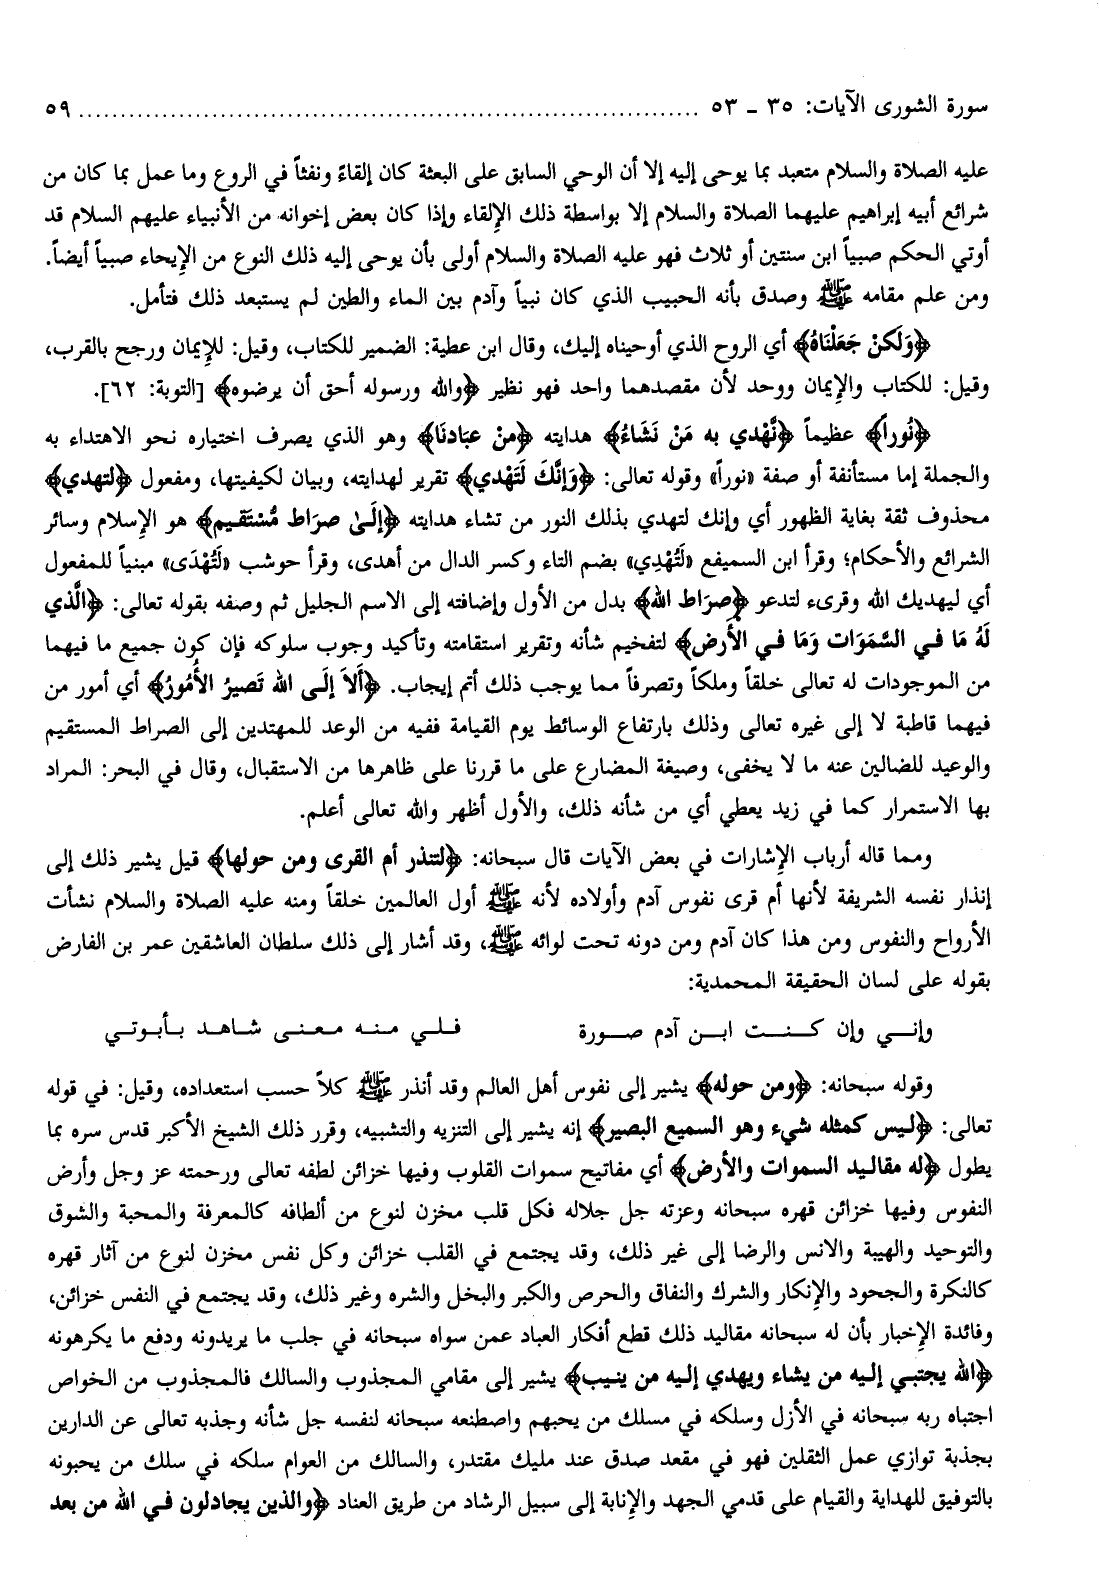 سورة الشورى الآيات: ٣٥ ـ ٥٣ ........................................................................... ٥٩
عليه الصلاة والسلام متعبد بما يوحى إليه إلا أن الوحي السابق على البعثة كان إلقاءً ونفثاً في الروع وما عمل بما كان من
شرائع أبيه إبراهيم عليهما الصلاة والسلام إلا بواسطة ذلك الإلقاء وإذا كان بعض إخوانه من الأنبياء عليهم السلام قد
أوتي الحكم صبياً ابن سنتين أو ثلاث فهو عليه الصلاة والسلام أولى بأن يوحى إليه ذلك النوع من الإيحاء صبياً أيضاً.
ومن علم مقامه ﷺ وصدق بأنه الحبيب الذي كان نبياً وآدم بين الماء والطين لم يستبعد ذلك فتأمل.
﴿وَلَكنْ جَعَلْنَاهُ﴾ أي الروح الذي أوحيناه إليك، وقال ابن عطية: الضمير للكتاب، وقيل: للإيمان ورجح بالقرب،
وقيل: للكتاب والإيمان ووحد لأن مقصدهما واحد فهو نظير ﴿والله ورسوله أحق أن يرضوه﴾ [التوبة: ٦٢].
﴿نُوراً﴾ عظيماً ﴿نَّهْدي به مَنْ نَشَاءُ﴾ هدايته ﴿منْ عبَادنَا﴾ وهو الذي يصرف اختياره نحو الاهتداء به
والجملة إما مستأنفة أو صفة «نوراً» وقوله تعالى: ﴿وَإنَّكَ لَتَهْدي﴾ تقرير لهدايته، وبيان لكيفيتها، ومفعول ﴿لتهدي﴾
محذوف ثقة بغاية الظهور أي وإنك لتهدي بذلك النور من تشاء هدايته ﴿إلَىٰ صرَاط مُّسْتَقيم﴾ هو الإسلام وسائر
الشرائع والأحكام؛ وقرأ ابن السميفع «لَتُهْدِي» بضم التاء وكسر الدال من أهدى، وقرأ حوشب «لَتُهْدَى» مبنياً للمفعول
أي ليهديك الله وقرىء لتدعو ﴿صرَاط الله﴾ بدل من الأول وإضافته إلى الاسم الجليل ثم وصفه بقوله تعالى: ﴿الَّذي
لَهُ مَا في السَّمَوَات وَمَا في الأَرض﴾ لتفخيم شأنه وتقرير استقامته وتأكيد وجوب سلوكه فإن كون جميع ما فيهما
من الموجودات له تعالى خلقاً وملكاً وتصرفاً مما يوجب ذلك أتم إيجاب. ﴿أَلاَ إلَى الله تَصيرُ الأُمُورُ﴾ أي أمور من
فيهما قاطبة لا إلى غيره تعالى وذلك بارتفاع الوسائط يوم القيامة ففيه من الوعد للمهتدين إلى الصراط المستقيم
والوعيد للضالين عنه ما لا يخفى، وصيغة المضارع على ما قررنا على ظاهرها من الاستقبال، وقال في البحر: المراد
بها الاستمرار كما في زيد يعطي أي من شأنه ذلك، والأول أظهر والله تعالى أعلم.
ومما قاله أرباب الإشارات في بعض الآيات قال سبحانه: ﴿لتنذر أم القرى ومن حولها﴾ قيل يشير ذلك إلى
إنذار نفسه الشريفة لأنها أم قرى نفوس آدم وأولاده لأنه ﷺ أول العالمين خلقاً ومنه عليه الصلاة والسلام نشأت
الأرواح والنفوس ومن هذا كان آدم ومن دونه تحت لوائه ﷺ، وقد أشار إلى ذلك سلطان العاشقين عمر بن الفارض
بقوله على لسان الحقيقة المحمدية:
وإنـــي وإن كـــنـــت ابـــن آدم صـــورة فـلـي مـنـه مـعـنـى شـاهـد بـأبـوتـي
وقوله سبحانه: ﴿ومن حوله﴾ يشير إلى نفوس أهل العالم وقد أنذر ﷺ كلاً حسب استعداده، وقيل: في قوله
تعالى: ﴿ليس كمثله شيء وهو السميع البصير﴾ إنه يشير إلى التنزيه والتشبيه، وقرر ذلك الشيخ الأكبر قدس سره بما
يطول ﴿له مقاليد السموات والأرض﴾ أي مفاتيح سموات القلوب وفيها خزائن لطفه تعالى ورحمته عز وجل وأرض
النفوس وفيها خزائن قهره سبحانه وعزته جل جلاله فكل قلب مخزن لنوع من ألطافه كالمعرفة والمحبة والشوق
والتوحيد والهيبة والانس والرضا إلى غير ذلك، وقد يجتمع في القلب خزائن وكل نفس مخزن لنوع من آثار قهره
كالنكرة والجحود والإنكار والشرك والنفاق والحرص والكبر والبخل والشره وغير ذلك، وقد يجتمع في النفس خزائن،
وفائدة الإخبار بأن له سبحانه مقاليد ذلك قطع أفكار العباد عمن سواه سبحانه في جلب ما يريدونه ودفع ما يكرهونه
﴿الله يجتبي إليه من يشاء ويهدي إليه من ينيب﴾ يشير إلى مقامي المجذوب والسالك فالمجذوب من الخواص
اجتباه ربه سبحانه في الأزل وسلكه في مسلك من يحبهم واصطنعه سبحانه لنفسه جل شأنه وجذبه تعالى عن الدارين
بجذبة توازي عمل الثقلين فهو في مقعد صدق عند مليك مقتدر، والسالك من العوام سلكه في سلك من يحبونه
بالتوفيق للهداية والقيام على قدمي الجهد والإنابة إلى سبيل الرشاد من طريق العناد ﴿والذين يجادلون في الله من بعد